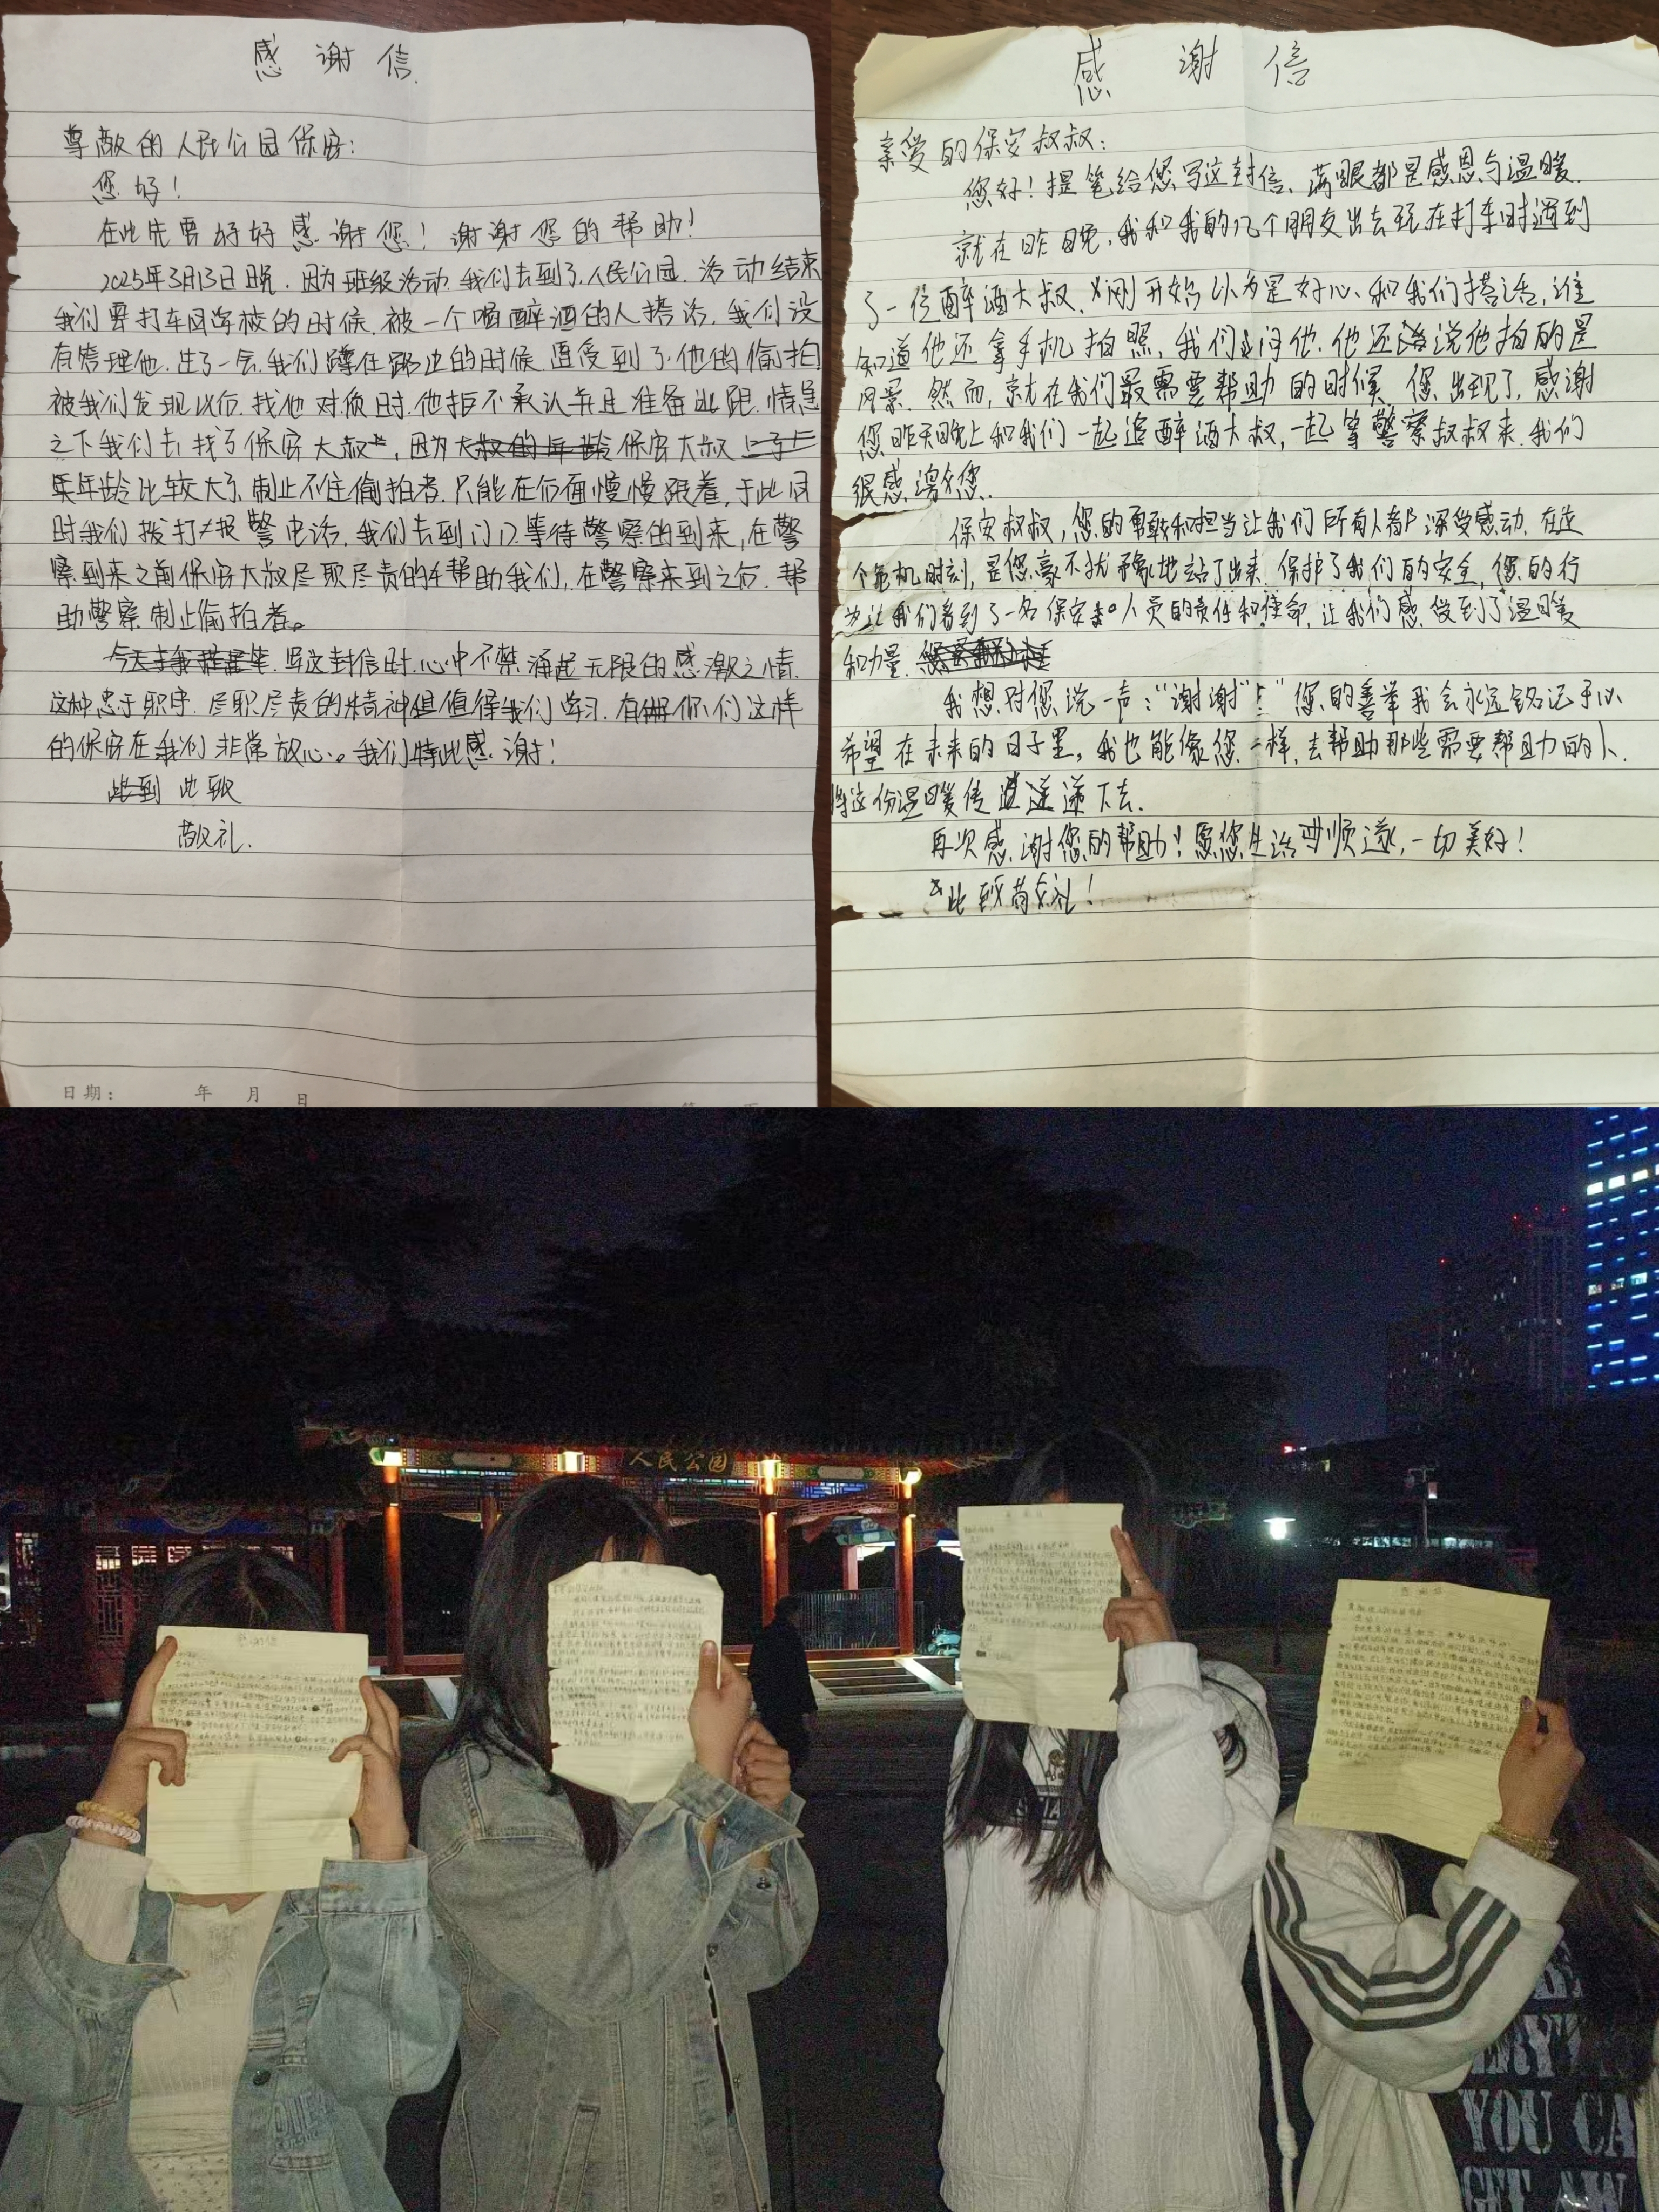 感谢信
尊敬的人民公园保安:
您好!
在此先要好好感谢您!谢谢您的帮助!
2025年3月13日晚.因为班级活动.我们去到了人民公园.活动结束
我们要打车回学校的时候.被一个喝醉酒的人搭话,我们没
有管理他.过了一会.我们蹲在路边的时候遭受到了他的偷拍
被我们发现以后.找他对质时.他拒不承认并且准备逃跑.情急
之下我们去找了保安大叔,因为保安大叔
年龄比较大了.制止不住偷拍者.只能在后面慢慢跟着,于此同
时我们拨打报警电话.我们去到门口等待警察的到来,在警
察到来之前保安大叔尽职尽责的帮助我们.在警察来到之后.帮
助警察制止偷拍者。
写这封信时.心中不禁涌起无限的感激之情.
这种忠于职守.尽职尽责的精神值得我们学习.有你们这样
的保安在我们非常放心。我们特此感谢!
此致
敬礼.
日期: 年 月 日
感谢信
亲爱的保安叔叔:
您好!提笔给您写这封信、满眼都是感恩与温暖.
就在昨晚,我和我的几个朋友出去玩在打车时遇到
了一位醉酒大叔.刚开始以为是好心、和我们搭话,谁
知道他还拿手机拍照,我们问他.他还说他拍的是
风景.然而,就在我们最需要帮助的时候.您出现了,感谢
您昨天晚上和我们一起追醉酒大叔,一起等警察叔叔来.我们
很感谢您.
保安叔叔,您的勇敢和担当让我们所有人都深受感动.在这
个危机时刻,是您毫不犹豫地站了出来.保护了我们的安全,您的行
为让我们看到了一名保安人员的责任和使命,让我们感受到了温暖
和力量.
我想对您说一声:“谢谢”!您的善举我会永远铭记于心
希望在未来的日子里,我也能像您一样,去帮助那些需要帮助的人.
将这份温暖传递下去.
再次感谢您的帮助!愿您生活顺遂,一切美好!
此致敬礼!
人民公园
YOU CA